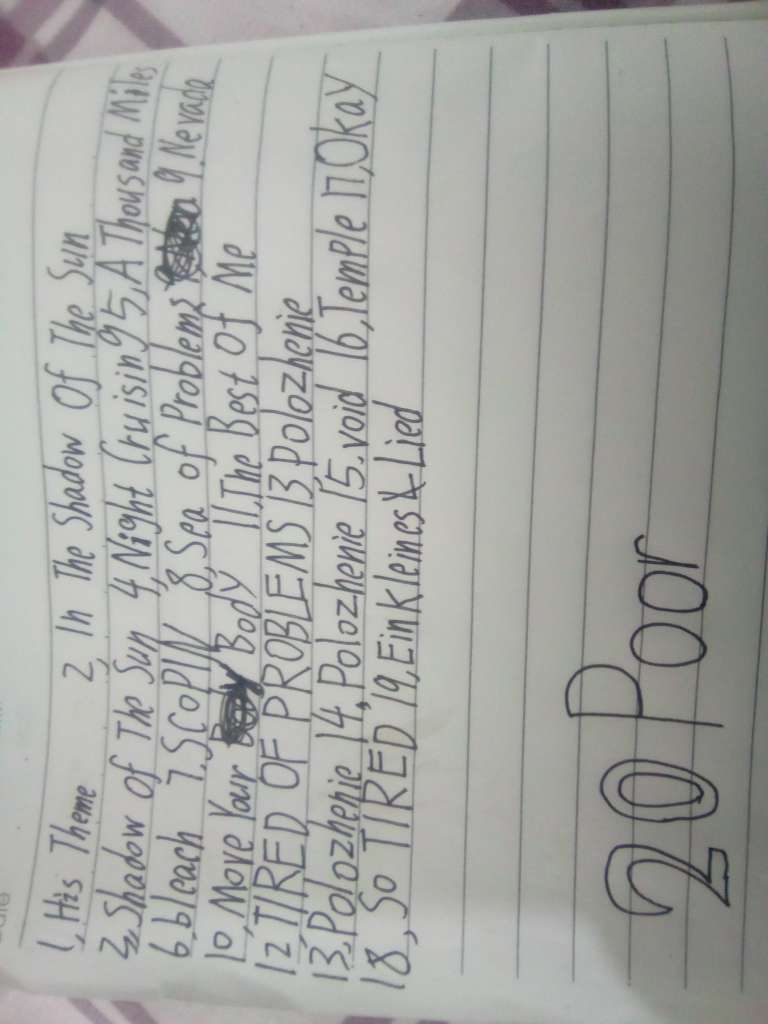 1, His Theme 2, In The Shadow Of The Sun
3, Shadow Of The Sun 4, Night Cruising 5, A Thousand Miles
6, bleach 7. SCOPIN 8, Sea of Problems 9, Nevada
10, Move Your Body 11, The Best Of Me
12 TIRED OF PROBLEMS 13 Polozhenie
13, Polozhenie 14, Polozhenie 15. void 16, Temple 17, Okay
18, So TIRED 19, Ein Kleines Lied
20 Poor